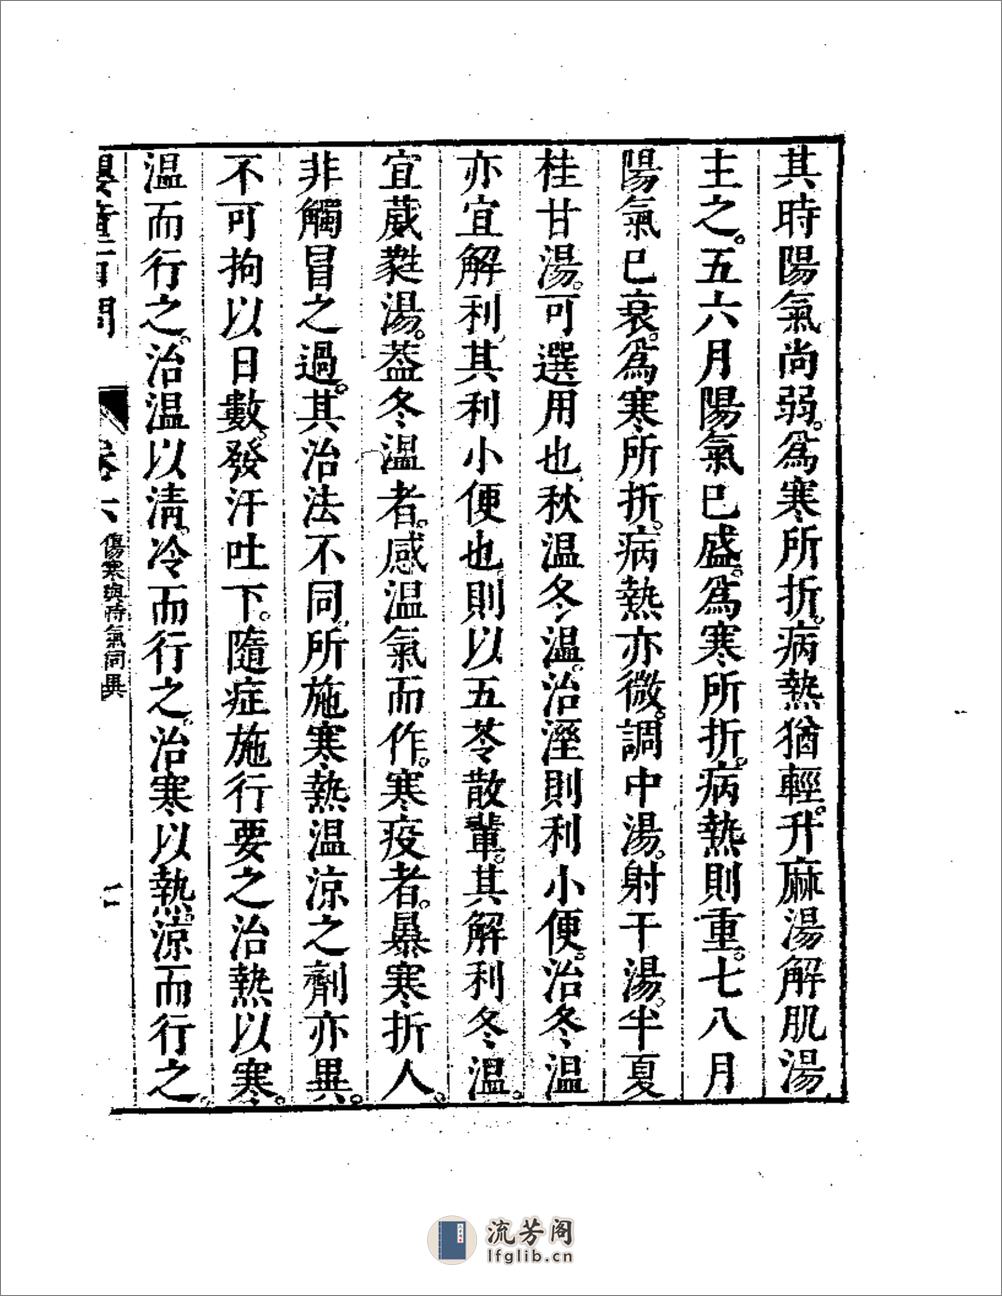 其時陽氣尚弱。爲寒所折。病熱猶輕。升麻湯解肌湯
主之。五六月陽氣已盛。爲寒所折。病熱則重。七八月
陽氣已衰。爲寒所折。病熱亦微。調中湯。射干湯。半夏
桂甘湯。可選用也。秋温冬温。治溼則利小便。治冬温
亦宜解利。其利小便也。則以五苓散輩。其解利冬温。
宜葳蕤湯。葢冬温者。感温氣而作。寒疫者。暴寒折人。
非觸冒之過。其治法不同。所施寒熱温凉之劑亦異。
不可拘以日數。發汗吐下。隨症施行。要之治熱以寒。
温而行之。治温以清。冷而行之。治寒以熱。凉而行之。
嬰童百問
卷六
傷寒與時氣同異
流芳阁
lfglib.cn